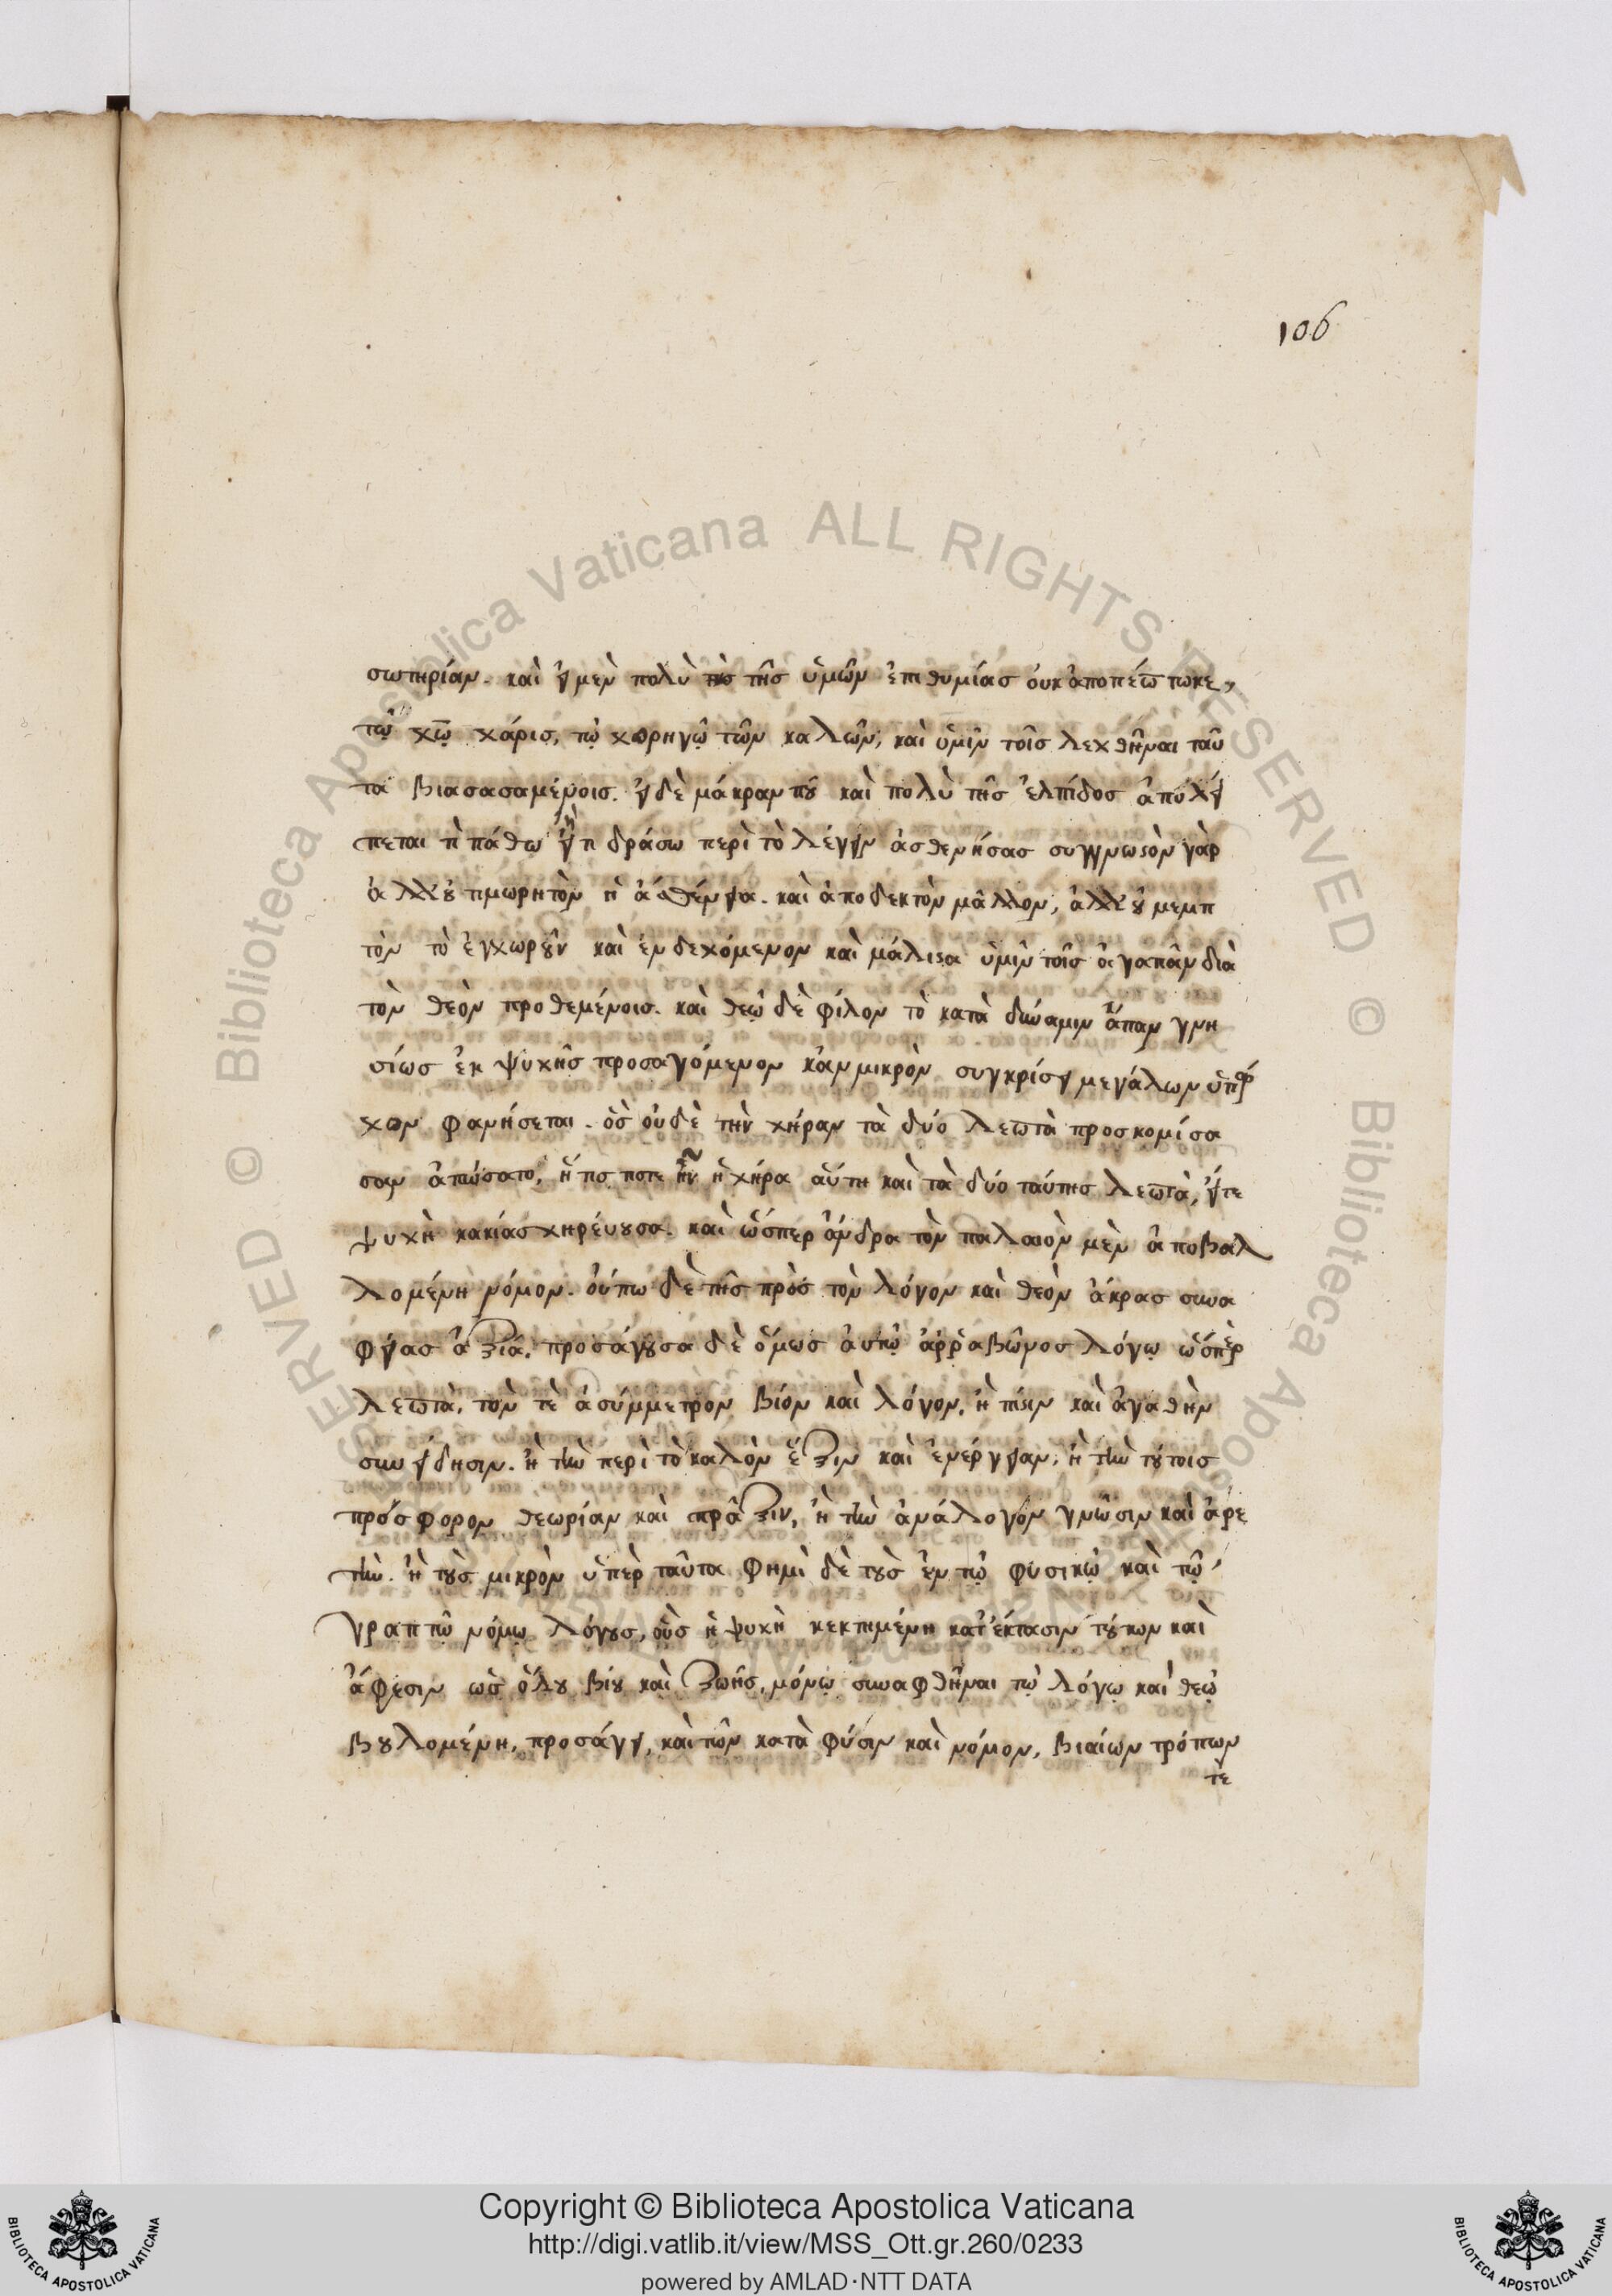 106
σωτηρίαν. καὶ εἰ μὲν πολὺ τῆς ὑμῶν ἐπιθυμίας οὐκ ἀποπέπτωκε,
τῷ χῷ χάρις, τῷ χορηγῷ τῶν καλῶν, καὶ ὑμῖν τοῖς λεχθῆναι ταῦ
τα βιασασαμένοις. εἰ δὲ μάκραν που καὶ πολὺ τῆς ἐλπίδος ἀπολεί
πεται τὶ πάθω ἢ τι δράσω περὶ τὸ λέγειν ἀσθενήσας συγγνωστὸν γὰρ
ἀλλ' οὐ τιμωρητὸν ἡ ἀσθένεια. καὶ ἀποδεκτὸν μᾶλλον, ἀλλ' οὐ μεμπ
τὸν τὸ ἐγχωροῦν καὶ ἐνδεχόμενον καὶ μάλιστα ὑμῖν τοῖς ἀγαπᾶν διὰ
τὸν θεὸν προθεμένοις. καὶ θεῷ δὲ φίλον τὸ κατὰ δύναμιν ἅπαν γνη
σίως ἐκ ψυχῆς προσαγόμενον κἂν μικρὸν συγκρίσει μεγάλων ὑπάρ
χον φανήσεται. ὃς οὐδὲ τὴν χήραν τὰ δύο λεπτὰ προσκομίσα
σαν ἀπώσατο, ἥτις ποτε ἦν ἡ χήρα αὕτη καὶ τὰ δύο ταύτης λεπτὰ, εἴτε
ψυχὴ κακίας χηρεύουσα. καὶ ὥσπερ ἄνδρα τὸν παλαιὸν μὲν ἀποβαλ
λομένη νόμον. οὔπω δὲ τῆς πρὸς τὸν λόγον καὶ θεὸν ἄκρας συνα
φείας ἀξιά, προσάγουσα δὲ ὅμως αὐτῷ ἀῤῥαβῶνος λόγῳ ὥσπερ
λεπτὰ, τὸν τὲ ἀσύμμετρον βίον καὶ λόγον, ἢ πίστιν καὶ ἀγαθὴν
συνείδησιν. ἢ τὴν περὶ τὸ καλὸν ἕξιν καὶ ἐνέργειαν, ἢ τὴν τούτοις
πρόσφορον θεωρίαν καὶ πρᾶξιν, ἢ τὴν ἀνάλογον γνῶσιν καὶ ἀρε
τὴν. ἢ τοὺς μικρὸν ὑπὲρ ταῦτα φημὶ δὲ τοὺς ἐν τῷ φυσικῷ καὶ τῷ
γραπτῷ νόμῳ λόγους, οὓς ἡ ψυχὴ κεκτημένη κατ' ἔκτασιν τούτων καὶ
ἄφεσιν ὡς ὅλου βίου καὶ ζωῆς, μόνῳ συναφθῆναι τῷ λόγῳ καὶ θεῷ
βουλομένη, προσάγει, καὶ τῶν κατὰ φύσιν καὶ νόμον, βιαίων τρόπων
τὲ
Copyright © Biblioteca Apostolica Vaticana
http://digi.vatlib.it/view/MSS_Ott.gr.260/0233
powered by AMLAD·NTT DATA